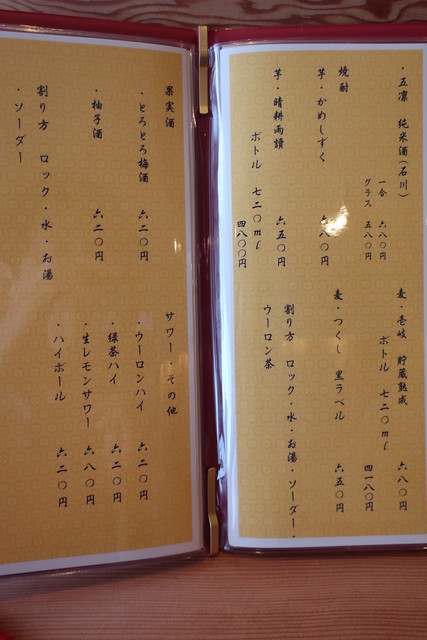 ・五凛　純米酒（石川）
一合　六八〇円
グラス　五八〇円
焼酎
芋・かめしずく　六八〇円
芋・晴耕雨讀　六五〇円
ボトル　七二〇ml　四八〇〇円
麦・壱岐　貯蔵熟成　六八〇円
ボトル　七二〇ml　四一八〇円
麦・つくし　黒ラベル　六五〇円
割り方　ロック・水・お湯・ソーダー・
ウーロン茶
果実酒
・とろとろ梅酒　六二〇円
・柚子酒　六二〇円
割り方　ロック・水・お湯
・ソーダー
サワー・その他
・ウーロンハイ　六二〇円
・緑茶ハイ　六二〇円
・生レモンサワー　六八〇円
・ハイボール　六二〇円